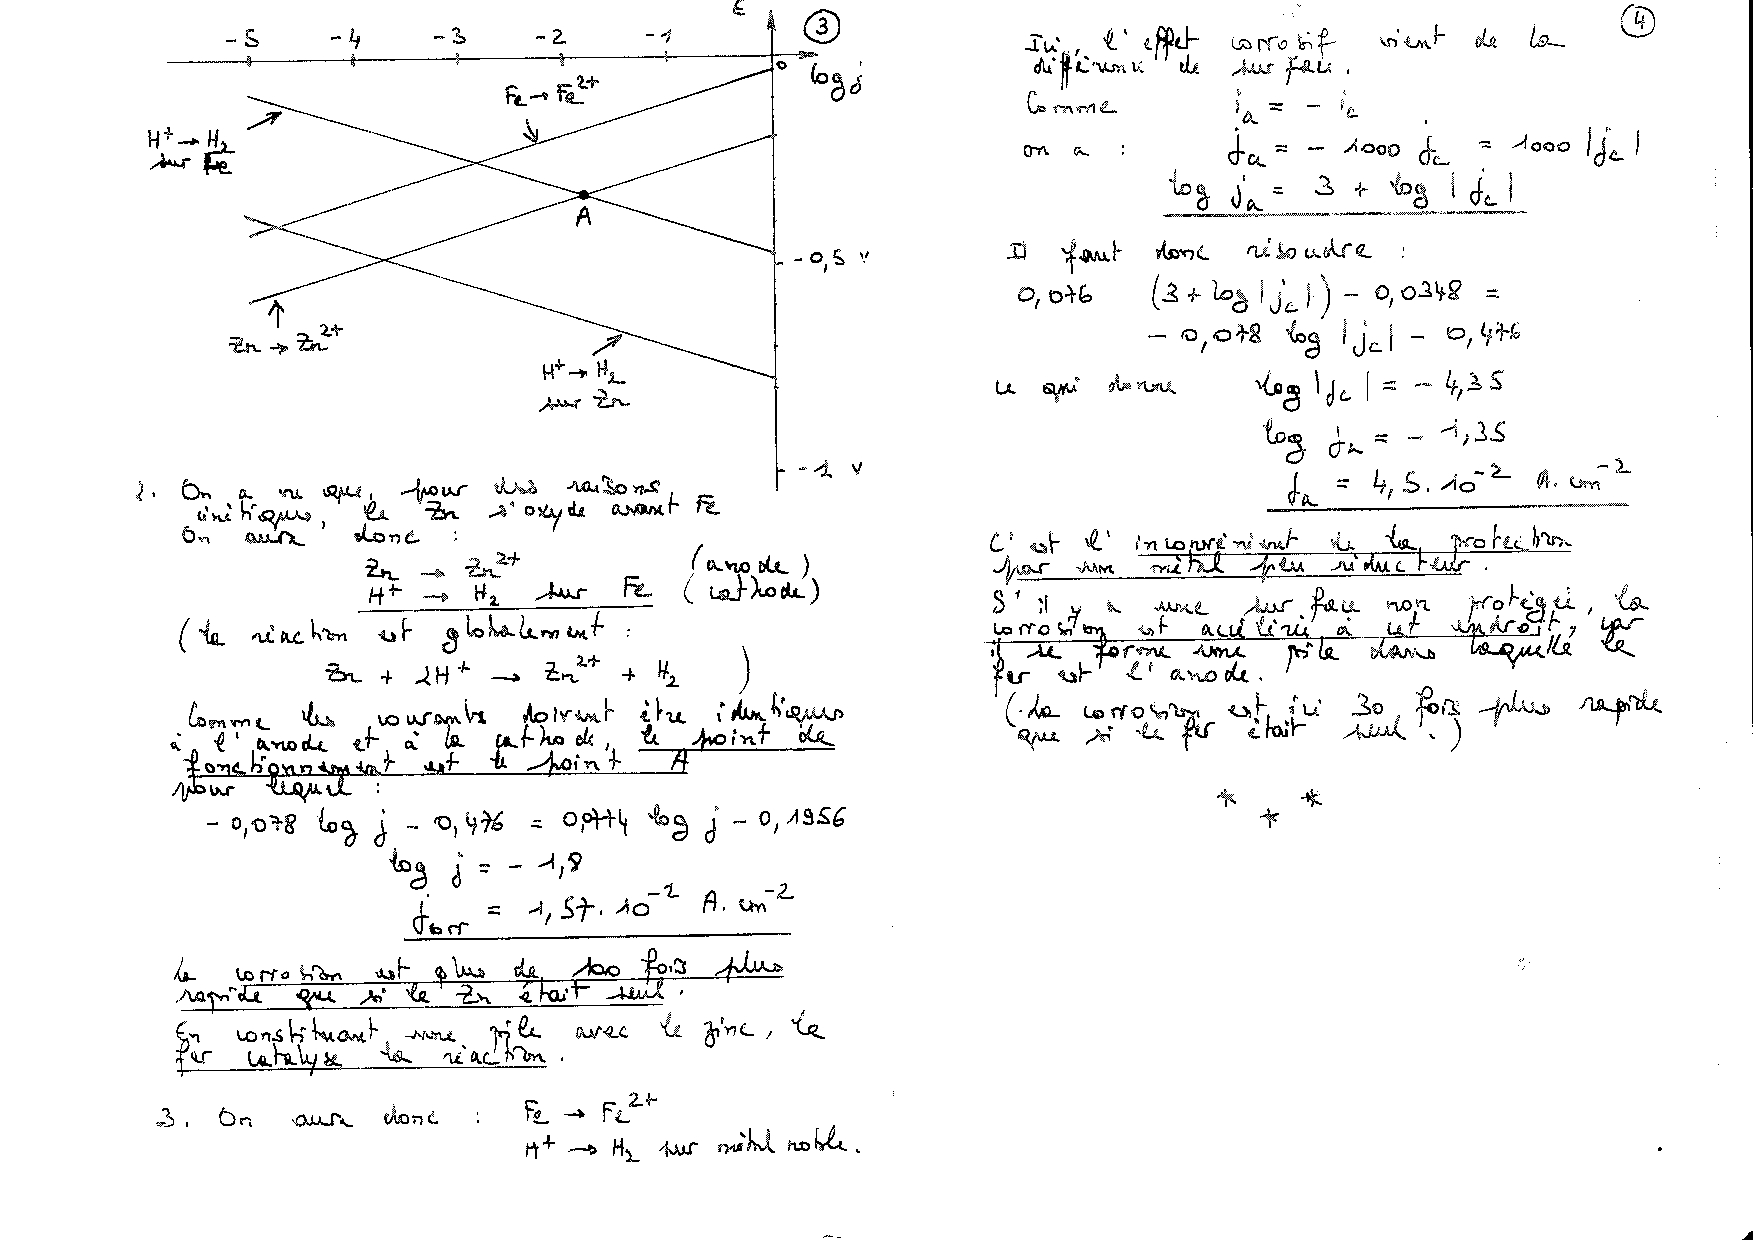 ③
ε
-5 -4 -3 -2 -1 0
log j
Fe → Fe²⁺
H⁺ → H₂
sur Fe
A
-0,5 V
Zn → Zn²⁺
H⁺ → H₂
sur Zn
-1 V
2. On a vu que, pour des raisons
cinétiques, le Zn s'oxyde avant Fe
On aura donc :
Zn → Zn²⁺ (anode)
H⁺ → H₂ sur Fe (cathode)
(la réaction est globalement :
Zn + 2H⁺ → Zn²⁺ + H₂ )
Comme les courants doivent être identiques
à l'anode et à la cathode, le point de
fonctionnement est le point A
pour lequel :
- 0,078 log j - 0,476 = 0,0774 log j - 0,1956
log j = - 1,8
jcorr = 1,57.10⁻² A.cm⁻²
La corrosion est plus de 100 fois plus
rapide que si le Zn était seul.
En constituant une pile avec le zinc, le
fer catalyse la réaction.
3. On aura donc : Fe → Fe²⁺
H⁺ → H₂ sur métal noble.
④
Ici, l'effet corrosif vient de la
différence de surface.
Comme iₐ = - i_c
on a : jₐ = - 1000 j_c = 1000 |j_c|
log jₐ = 3 + log |j_c|
Il faut donc résoudre :
0,076 (3 + log |j_c|) - 0,0348 =
- 0,078 log |j_c| - 0,476
ce qui donne log |j_c| = - 4,35
log jₐ = - 1,35
jₐ = 4,5.10⁻² A.cm⁻²
C'est l'inconvénient de la protection
par un métal peu réducteur.
S'il y a une surface non protégée, la
corrosion est accélérée à cet endroit, car
il se forme une pile dans laquelle le
fer est l'anode.
(La corrosion est ici 30 fois plus rapide
que si le fer était seul.)
* * *